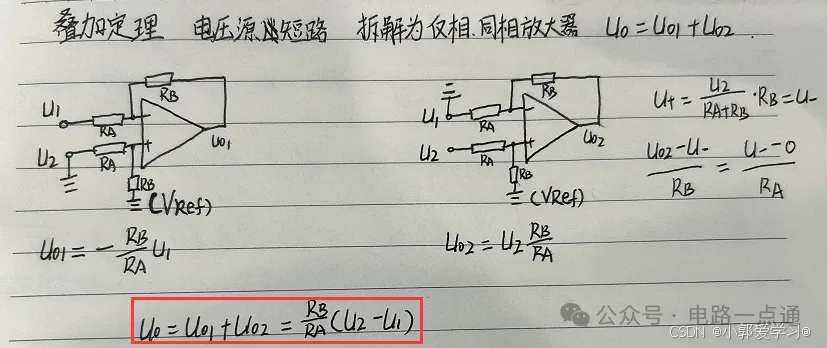 叠加定理 电压源以短路 拆解为仅相.同相放大器 U0=U01+U02.
U1 RA RB - + U01
U2 RA RB
(VRef)
U1 RA RB - + U02
U2 RA RB
(VRef)
U+ = U2/(RA+RB)·RB = U-
(U02-U-)/RB = (U--0)/RA
U01 = -RB/RA U1
U02 = U2 RB/RA
U0 = U01+U02 = RB/RA (U2-U1)
公众号·电路一点通
CSDN @小郭爱学习@